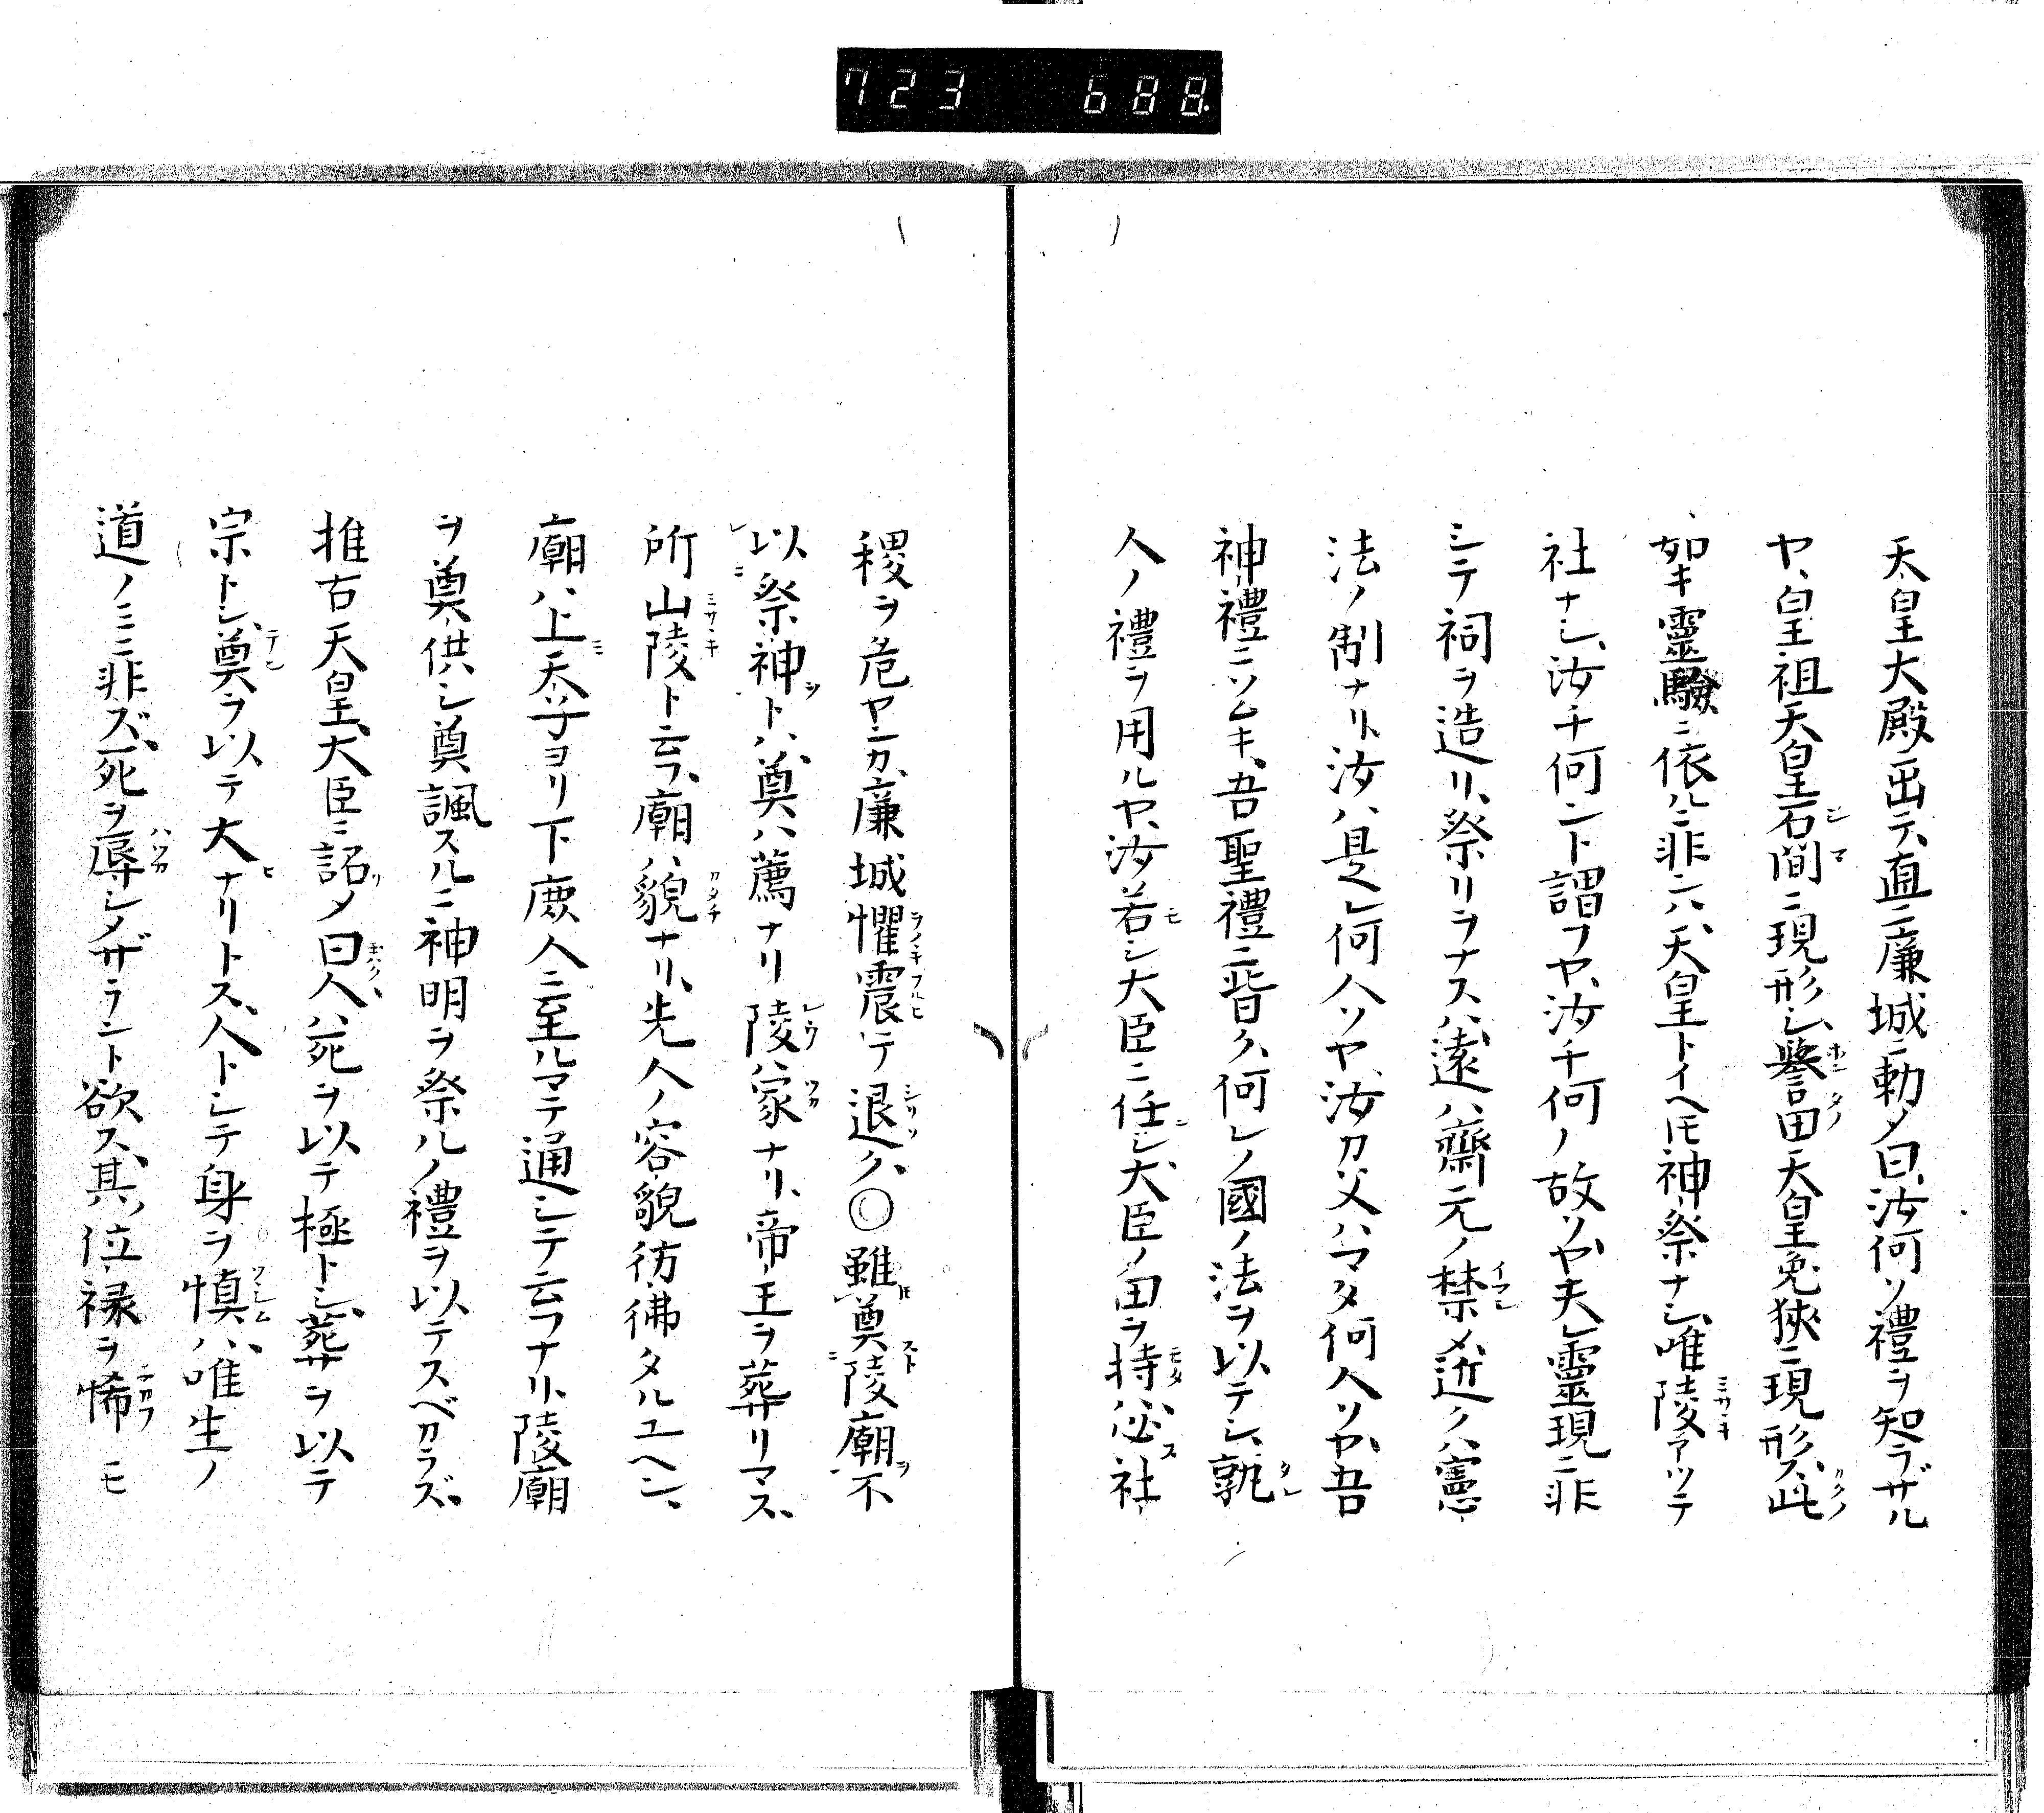 723 688.
天皇大殿ニ出テ直ニ廉城ニ勅メ曰、汝何ソ禮ヲ知ラザル
ヤ、皇祖天皇石間ニ現形シ、譽田天皇兎狹ニ現形ス、此
如キ靈驗ニ依ルニ非ンハ、天皇トイヘ𪜈神祭ナシ、唯陵アツテ
社ナシ、汝チ何ント謂フヤ、汝チ何ノ故ソヤ、夫レ靈現ニ非
シテ祠ヲ造リ、祭リヲナスハ、遠ハ齋元ノ禁メ、近クハ憲
法ノ制ナリ、汝ハ是レ何人ソヤ、汝カ父ハマタ何人ソヤ、吾
神禮ニソムキ、吾聖禮ニ背ク、何レノ國ノ法ヲ以テシ、孰
人ノ禮ヲ用ルヤ、汝若シ大臣ニ任シ、大臣ノ田ヲ持ハ、必社
稷ヲ危ヤンカ、廉城懼震テ退ク、〇雖奠陵廟不
以祭神ト、奠ハ薦ナリ陵ハ冢ナリ、帝王ヲ葬リマス、
所山陵ト云フ、廟ハ貌ナリ、先人ノ容貌彷彿タルユヘン、
廟ハ、上天子ヨリ下庶人ニ至ルマテ通シテ云フナリ、陵廟
ヲ奠供シ奠諷スルニ神明ヲ祭ルノ禮ヲ以テスベカラズ、
推古天皇、大臣ニ詔メ曰、人ハ死ヲ以テ極トシ、葬ヲ以テ
宗トシ、奠ヲ以テ大ナリトス、人トシテ身ヲ慎ハ、唯生ノ
道ノミニ非ズ、死ヲ辱シメザラント欲ス、其ノ位禄ヲ怖モ